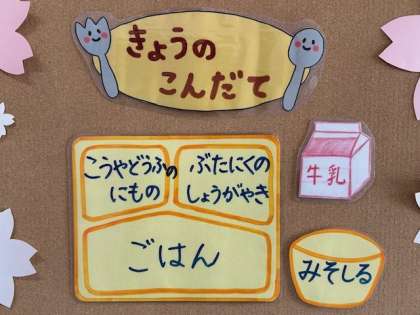 きょうの
こんだて
こうやどうふの
にもの
ぶたにくの
しょうがやき
牛乳
ごはん
みそしる